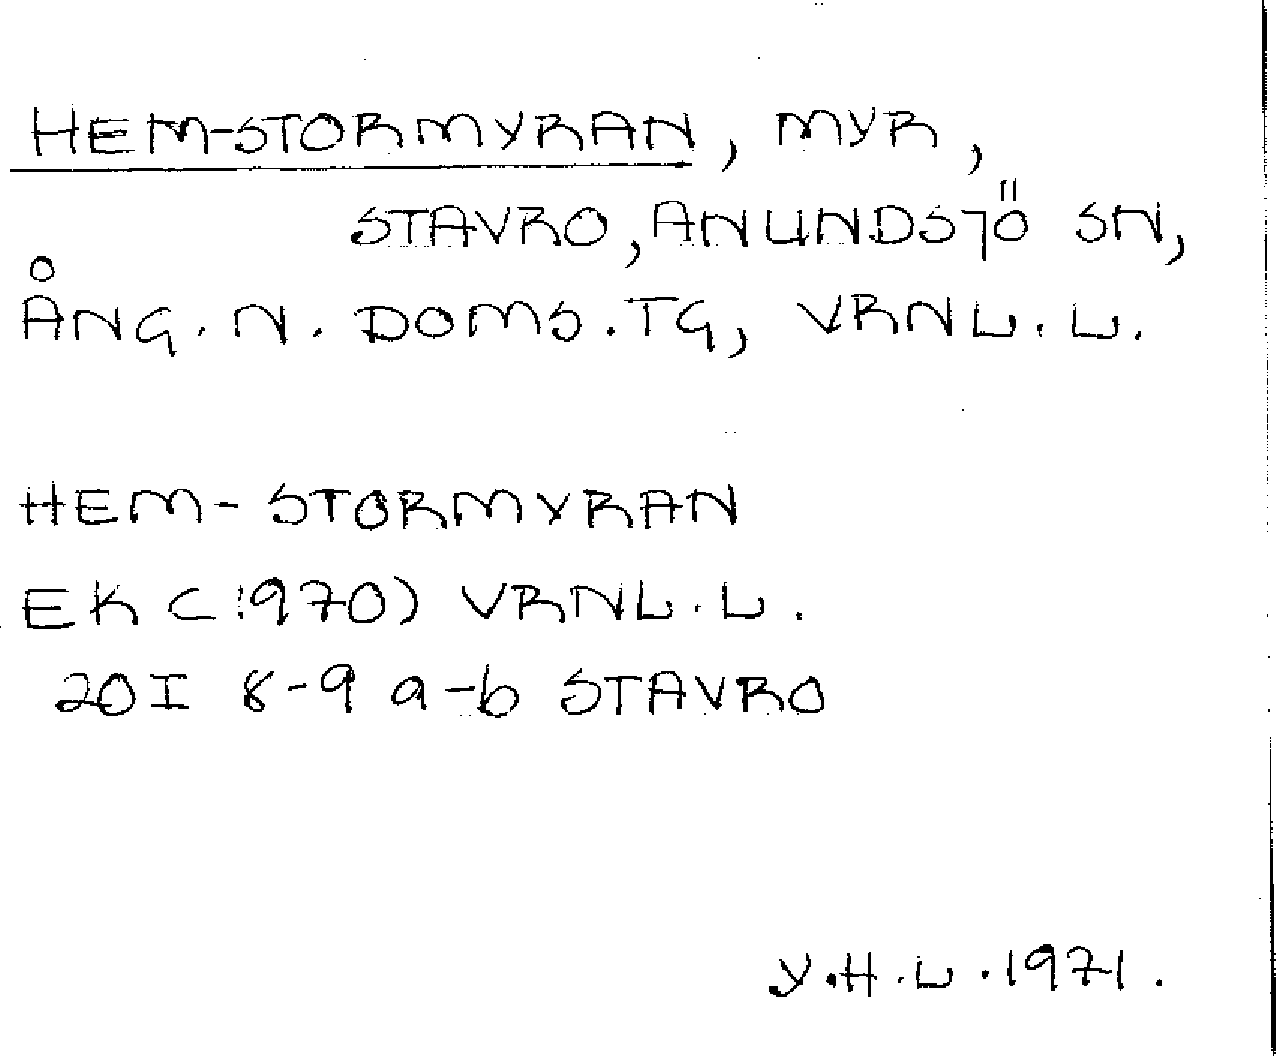 HEM-STORMYRAN, MYR,
STAVRO, ANUNDSJÖ SN,
ÅNG. N. DOMS. TG, VRNL. L.
HEM-STORMYRAN
EK (1970) VRNL. L.
20I 8-9 a-b STAVRO
Y.H.L. 1971.